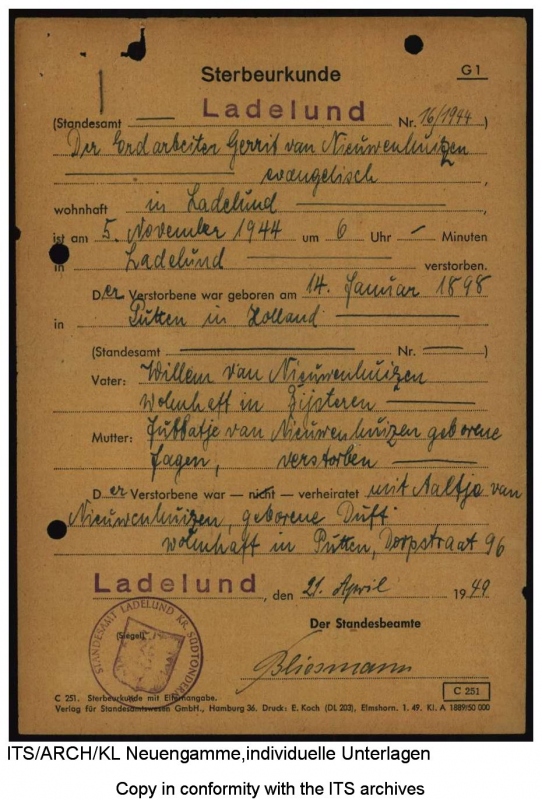 Sterbeurkunde
G 1
(Standesamt — Ladelund Nr. 16/1944)
Der Erdarbeiter Gerrit van Nieuwenhuizen
evangelisch
wohnhaft in Ladelund
ist am 5. November 1944 um 6 Uhr — Minuten
in Ladelund verstorben.
Der Verstorbene war geboren am 14. Januar 1898
in Putten in Holland
(Standesamt — Nr. —)
Vater: Willem van Nieuwenhuizen
wohnhaft in
Mutter: van Nieuwenhuizen geborene
verstorben
Der Verstorbene war — nicht — verheiratet mit Aaltje van
Nieuwenhuizen, geborene Duft
wohnhaft in Putten, Dorpstraat 96
Ladelund, den 21. April 1949
Der Standesbeamte
(Siegel)
STANDESAMT LADELUND KR. SÜDTONDERN
Bliesmann
C 251. Sterbeurkunde mit Elternangabe.
C 251
Verlag für Standesamtswesen GmbH., Hamburg 36. Druck: E. Koch (DL 203), Elmshorn. 1. 49. Kl. A 1889/50 000
ITS/ARCH/KL Neuengamme,individuelle Unterlagen
Copy in conformity with the ITS archives